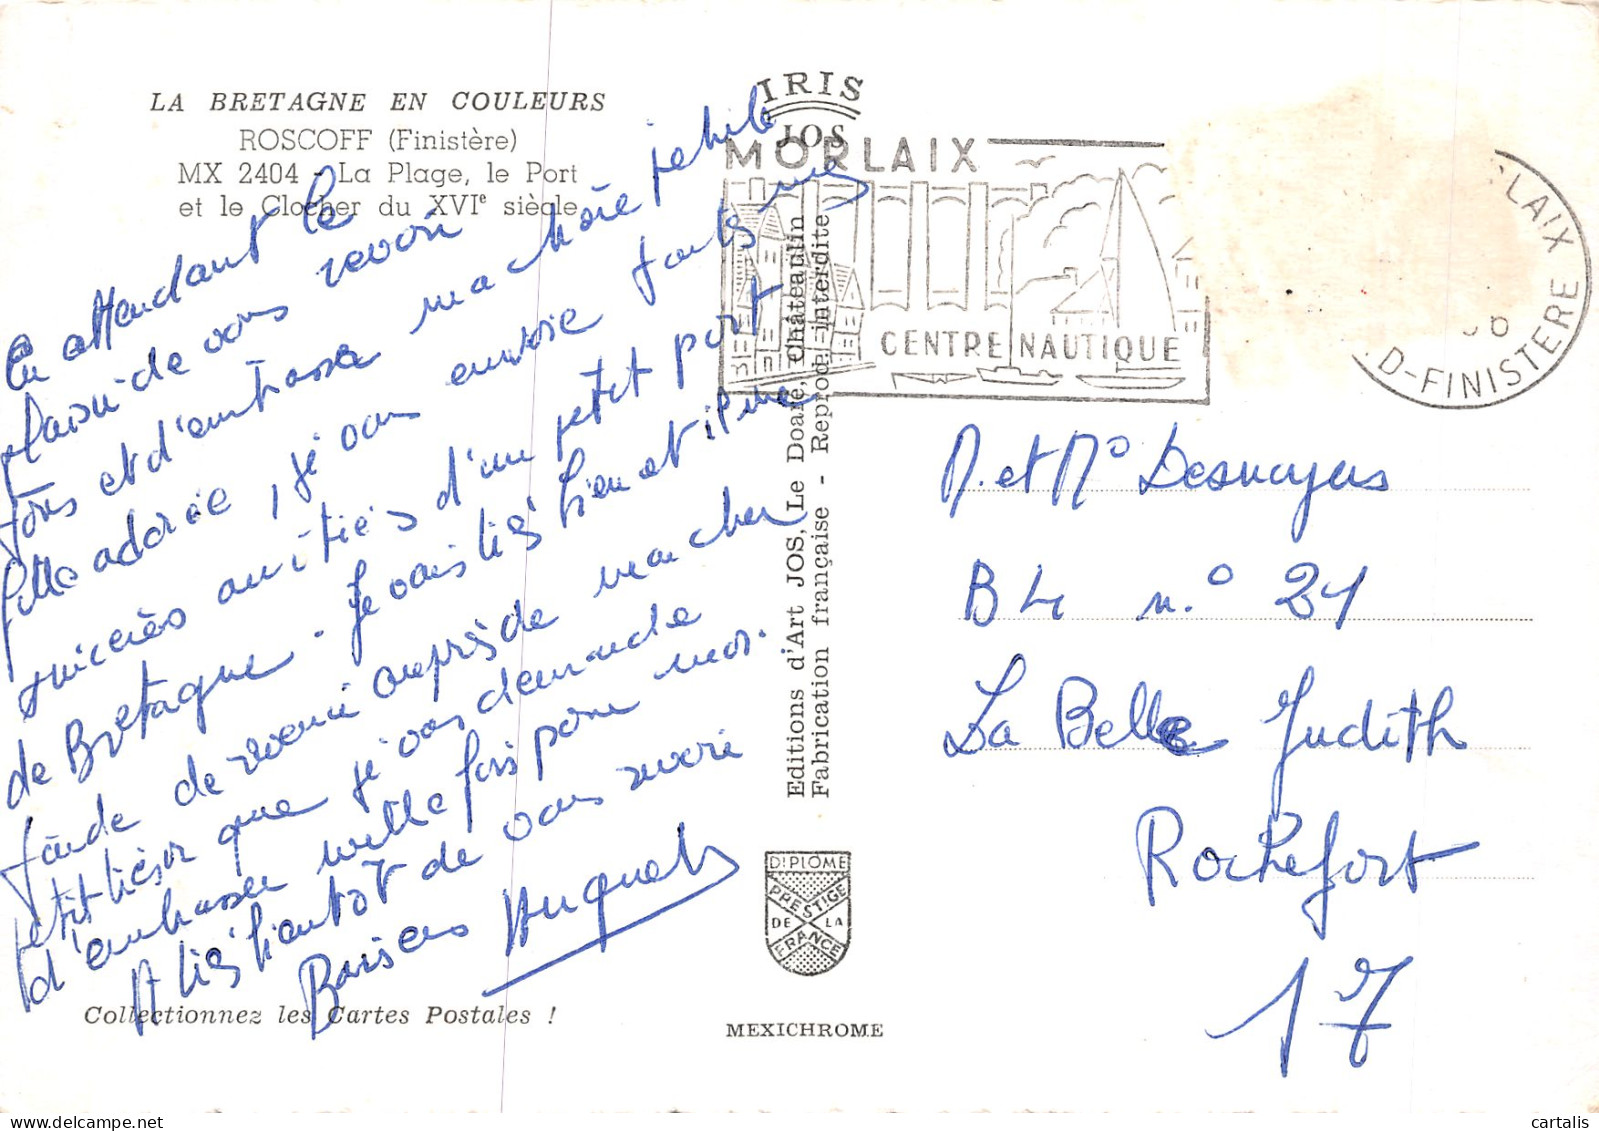 LA BRETAGNE EN COULEURS
ROSCOFF (Finistère)
MX 2404 - La Plage, le Port
et le Clocher du XVIe siècle
En attendant le
plaisir de vous revoir
tous et d'embrasser ma chère petite
fille adorée, je vous envoie toutes mes
sincères amitiés d'un petit port
de Bretagne. Je vais très bien et il me
tarde de revenir auprès de mon cher
petit trésor que je vous demande
d'embrasser mille fois pour moi.
A très bientôt de vous revoir
Baisers Huguette
Collectionnez les Cartes Postales !
IRIS
JOS
MORLAIX
CENTRE NAUTIQUE
LAIX
D-FINISTERE
Editions d'Art JOS, Le Doaré, Châteaulin
Fabrication française - Reprod. interdite
DIPLOME
PRESTIGE
DE LA
FRANCE
MEXICHROME
M. et Me Desnoyers
B4 n.° 21
La Belle Judith
Rochefort
17
cartalis